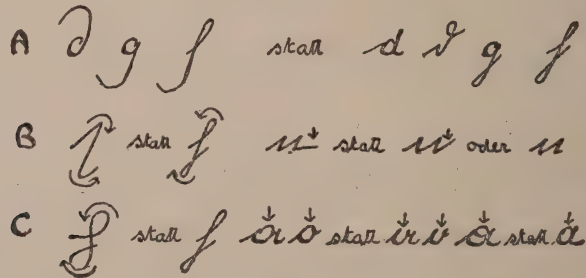 A d g f statt d d g f
B f statt f u statt u oder u
C f statt f a o statt a o a statt a